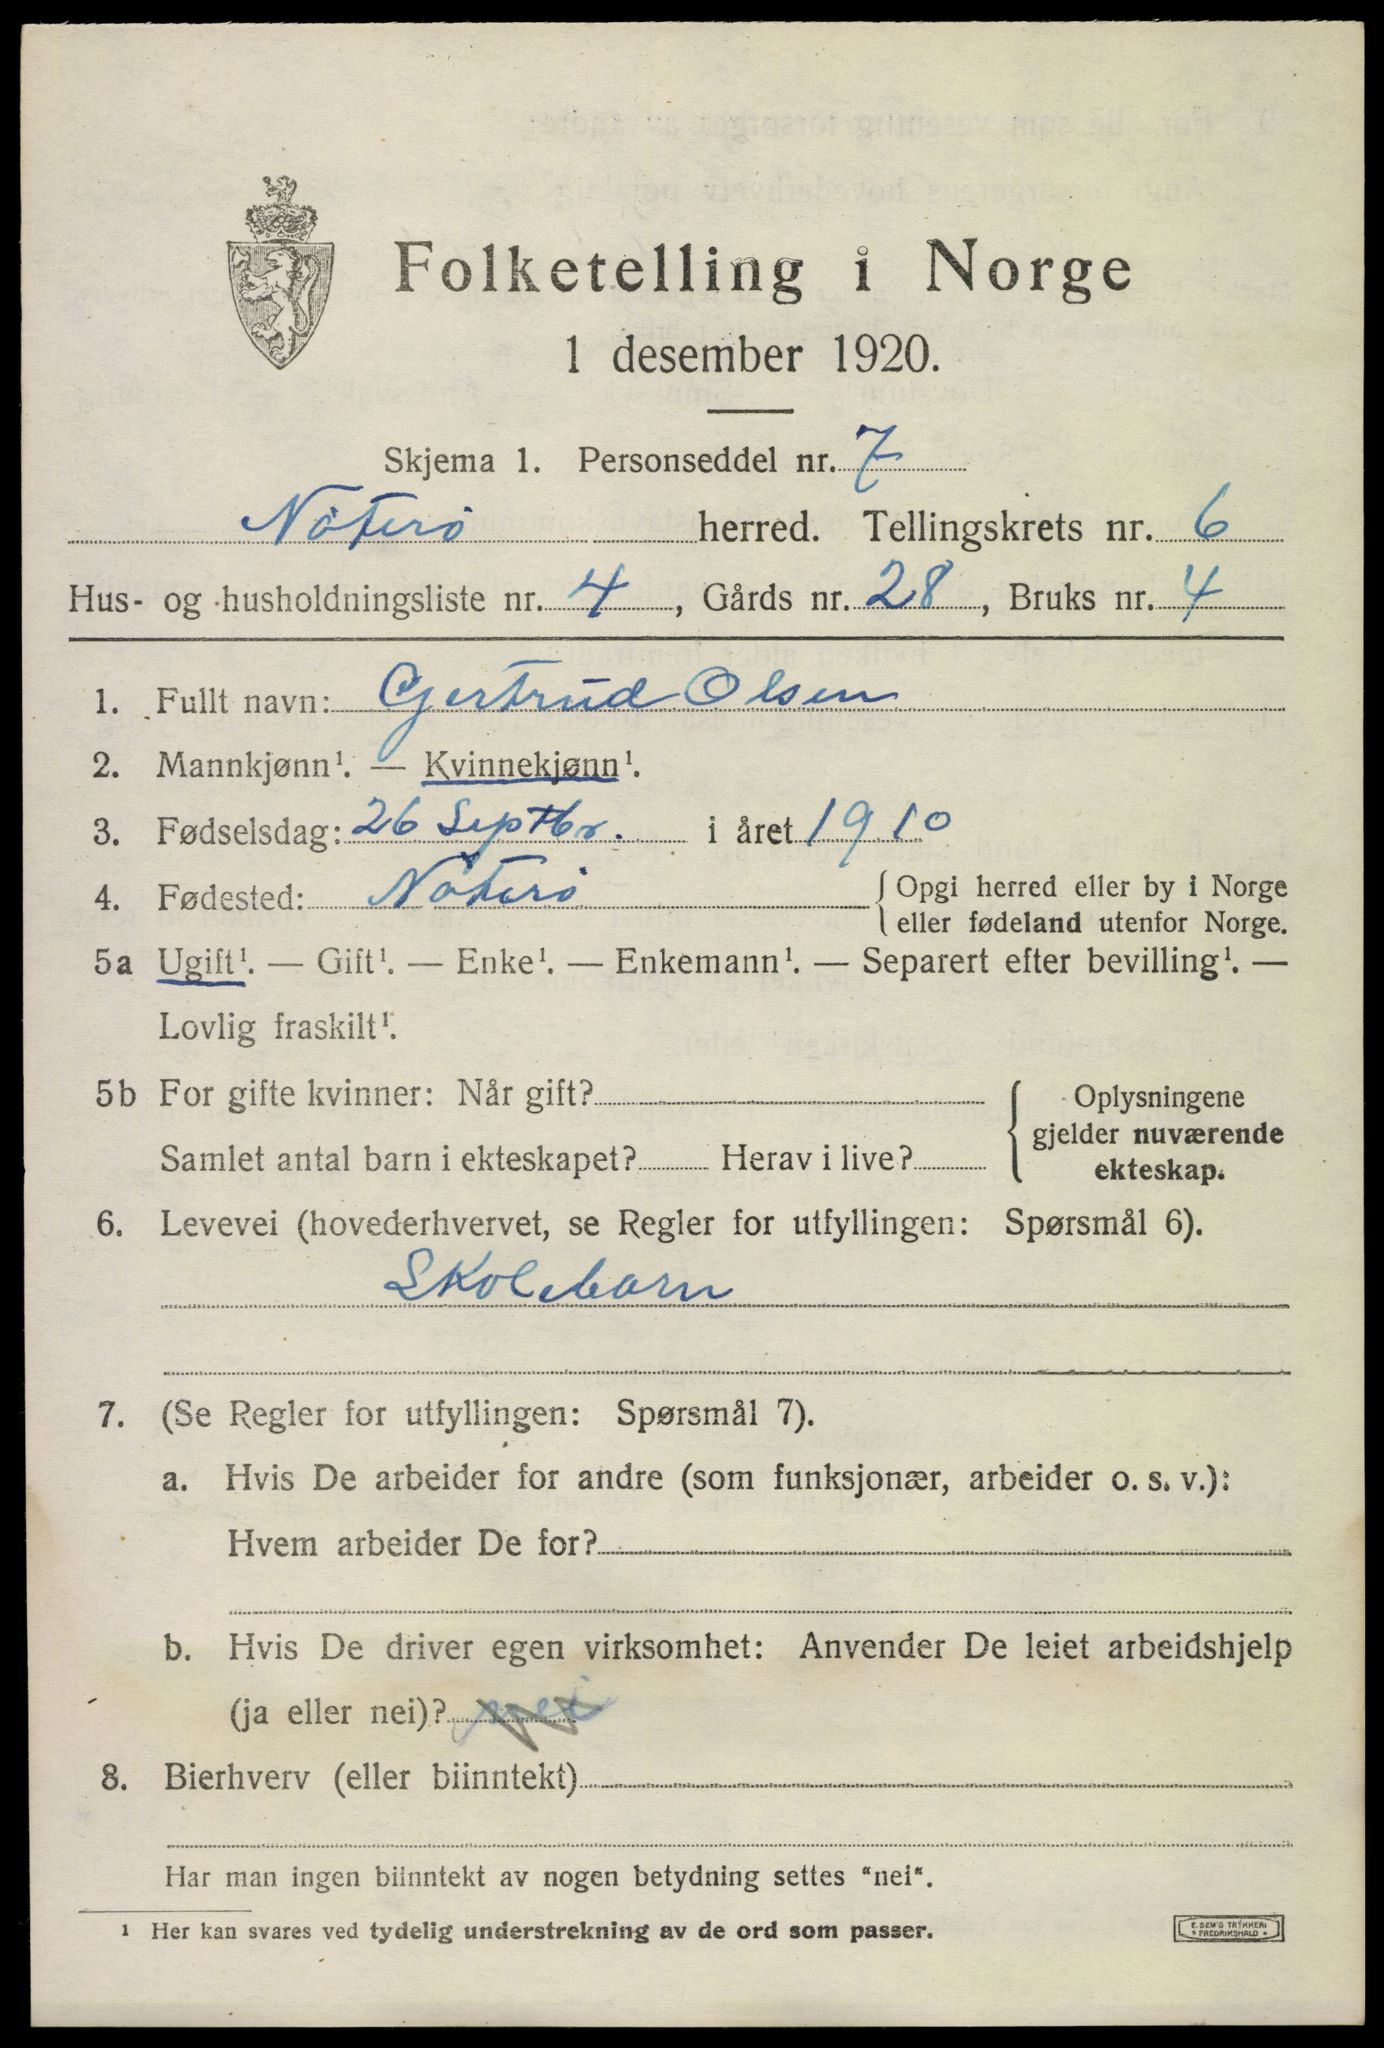 Folketelling i Norge
1 desember 1920.
Skjema 1. Personseddel nr. 7
Nöterö herred. Tellingskrets nr. 6
Hus- og husholdningsliste nr. 4, Gårds nr. 28, Bruks nr. 4
1. Fullt navn: Gjertrud Olsen
2. Mannkjønn¹. — Kvinnekjønn¹.
3. Fødselsdag: 26 Septbr. i året 1910
4. Fødested: Nöterö { Opgi herred eller by i Norge
eller fødeland utenfor Norge.
5a Ugift¹. — Gift¹. — Enke¹. — Enkemann¹. — Separert efter bevilling¹. —
Lovlig fraskilt¹.
5b For gifte kvinner: Når gift?
Samlet antal barn i ekteskapet? Herav i live?
{ Oplysningene
gjelder nuværende
ekteskap.
6. Levevei (hovederhvervet, se Regler for utfyllingen: Spørsmål 6).
Skolebarn
7. (Se Regler for utfyllingen: Spørsmål 7).
a. Hvis De arbeider for andre (som funksjonær, arbeider o. s. v.):
Hvem arbeider De for?
b. Hvis De driver egen virksomhet: Anvender De leiet arbeidshjelp
(ja eller nei)? nei
8. Bierhverv (eller biinntekt)
Har man ingen biinntekt av nogen betydning settes "nei".
¹ Her kan svares ved tydelig understrekning av de ord som passer.
E. SEM'S TRYKKERI
FREDRIKSHALD